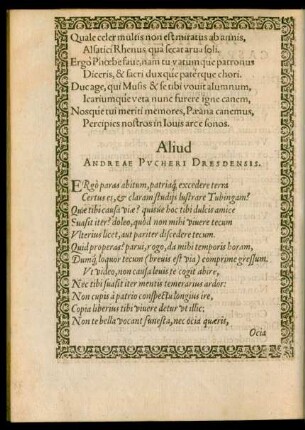 Quale celer multis non est miratus ab annis,
Alsatici Rhenus qua secat arua soli.
Ergò Phœbe faue, nam tu vatumque patronus
Diceris, & sacri duxque paterque chori.
Duc age, qui Musis & se tibi vouit alumnum,
Icariumque veta nunc furere igne canem,
Nosque tui meriti memores, Pæana canemus,
Percipies nostros in Iouis arce sonos.
Aliud
ANDREAE PVCHERI DRESDENSIS.
ERgò paras abitum, patriaq́; excedere terra
Certus es, & claram studijs lustrare Tubingam?
Quæ tibi causa viæ? quisue hoc tibi dulcis amice
Suasit iter? doleo, quod non mihi viuere tecum
Vlterius licet, aut pariter discedere tecum.
Quid properas? paru, rogo, da mihi temporis horam,
Dumq́; loquor tecum (breuis est via) comprime gressum.
Vt video, non causa leuis te cogit abire,
Nec tibi suasit iter mentis temerarius ardor:
Non cupis à patrio conspectu longius ire,
Copia liberius tibi viuere detur vt illic:
Non te bella vocant funesta, nec ocia quæris,
Ocia